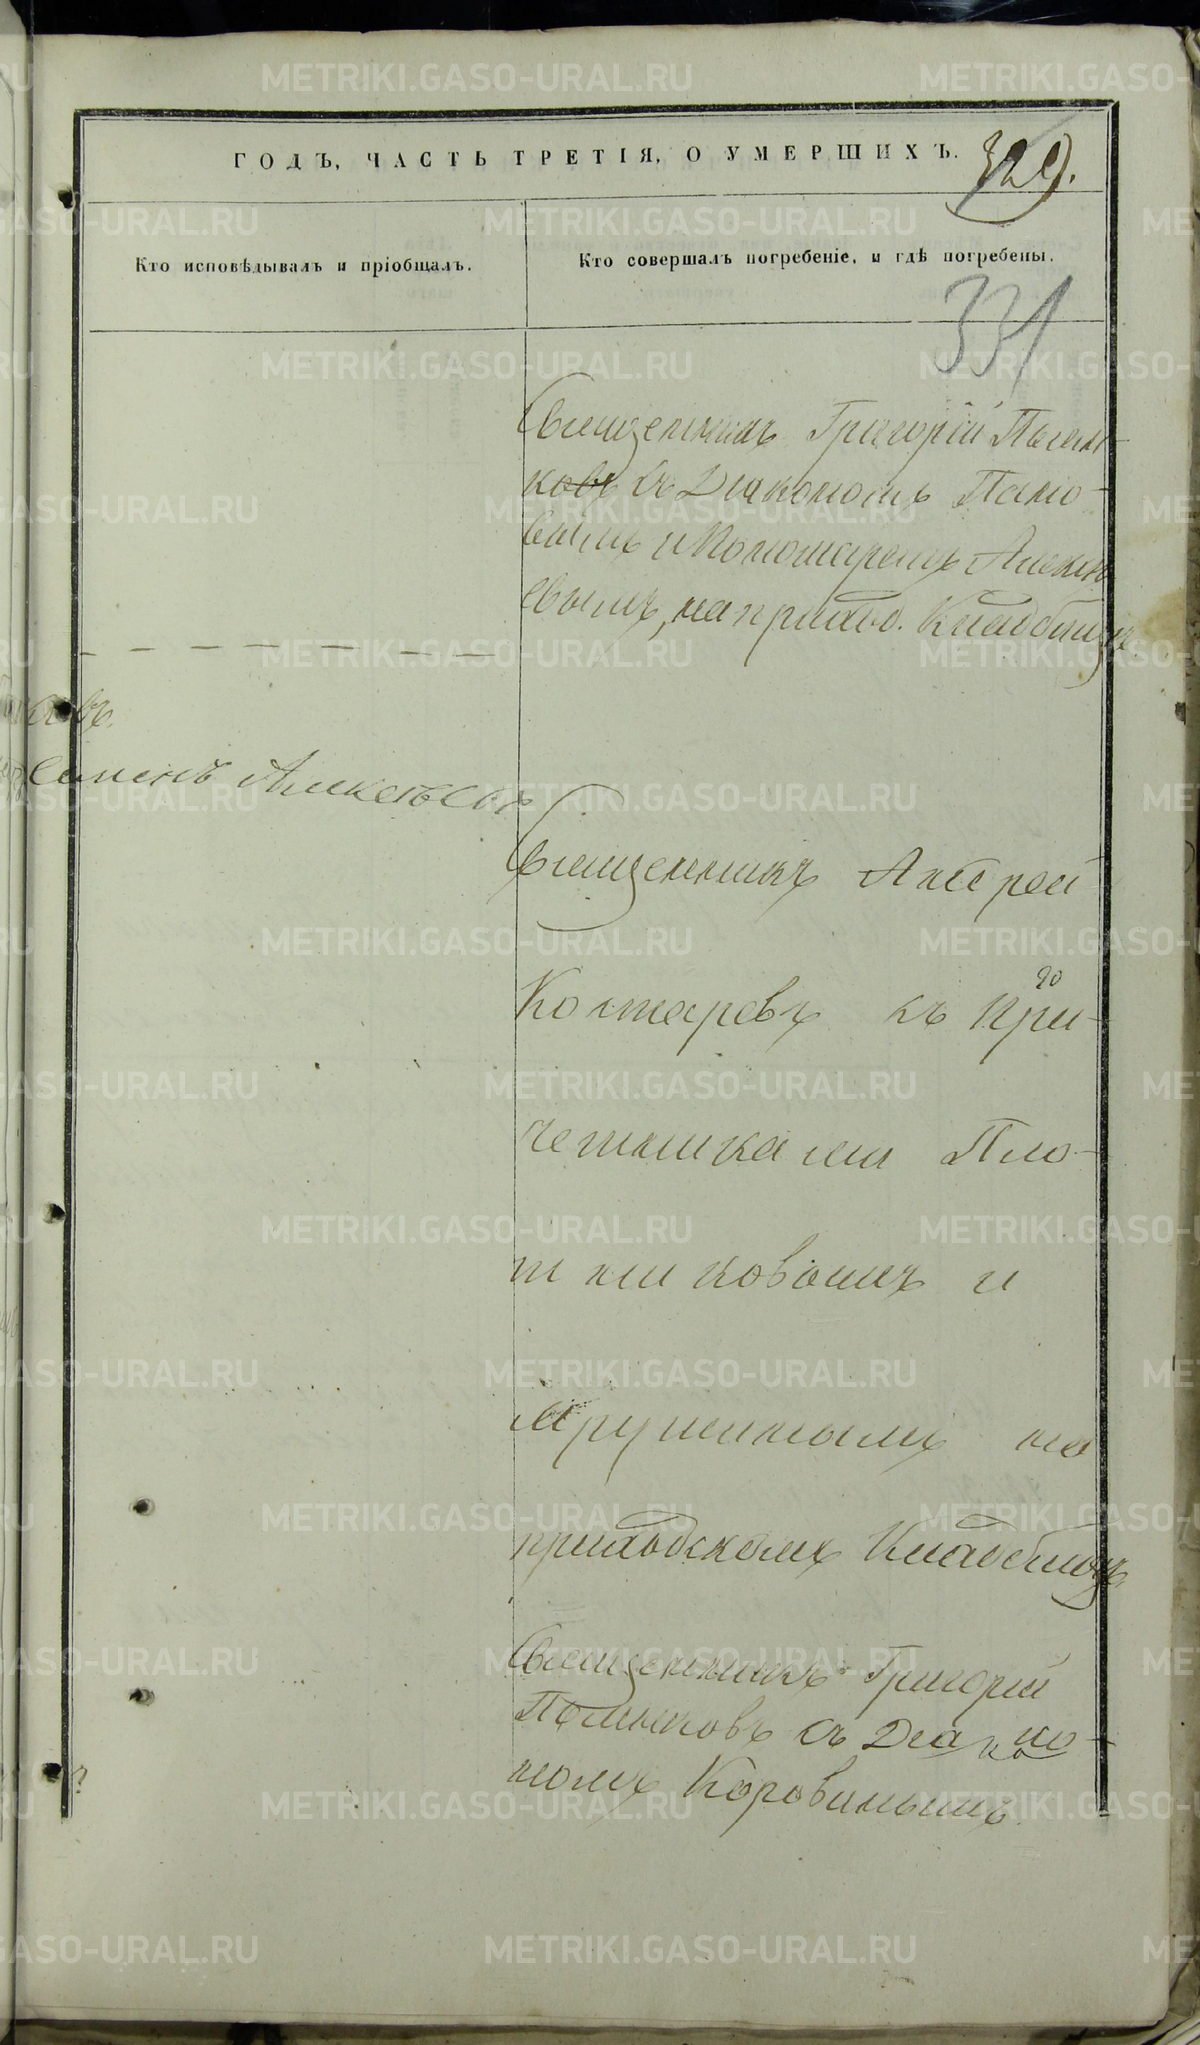 ГОДЪ, ЧАСТЬ ТРЕТІЯ, О УМЕРШИХЪ.
329.
Кто исповѣдывалъ и пріобщалъ.
Кто совершалъ погребеніе, и гдѣ погребены.
331
Священникъ Григорій Пѣнь-
ковъ съ Діакономъ Попо-
вымъ и Пономаремъ Алексѣ
евымъ, на приход. Кладбищѣ.
овъ.
Семенъ Алексѣевъ
Священникъ Андрей
Костаревъ съ При-
четниками Пло-
тниковымъ и
на
приходскомъ Кладбищѣ
Священникъ Григорій
съ Діако-
номъ Коровинымъ
METRIKI.GASO-URAL.RU